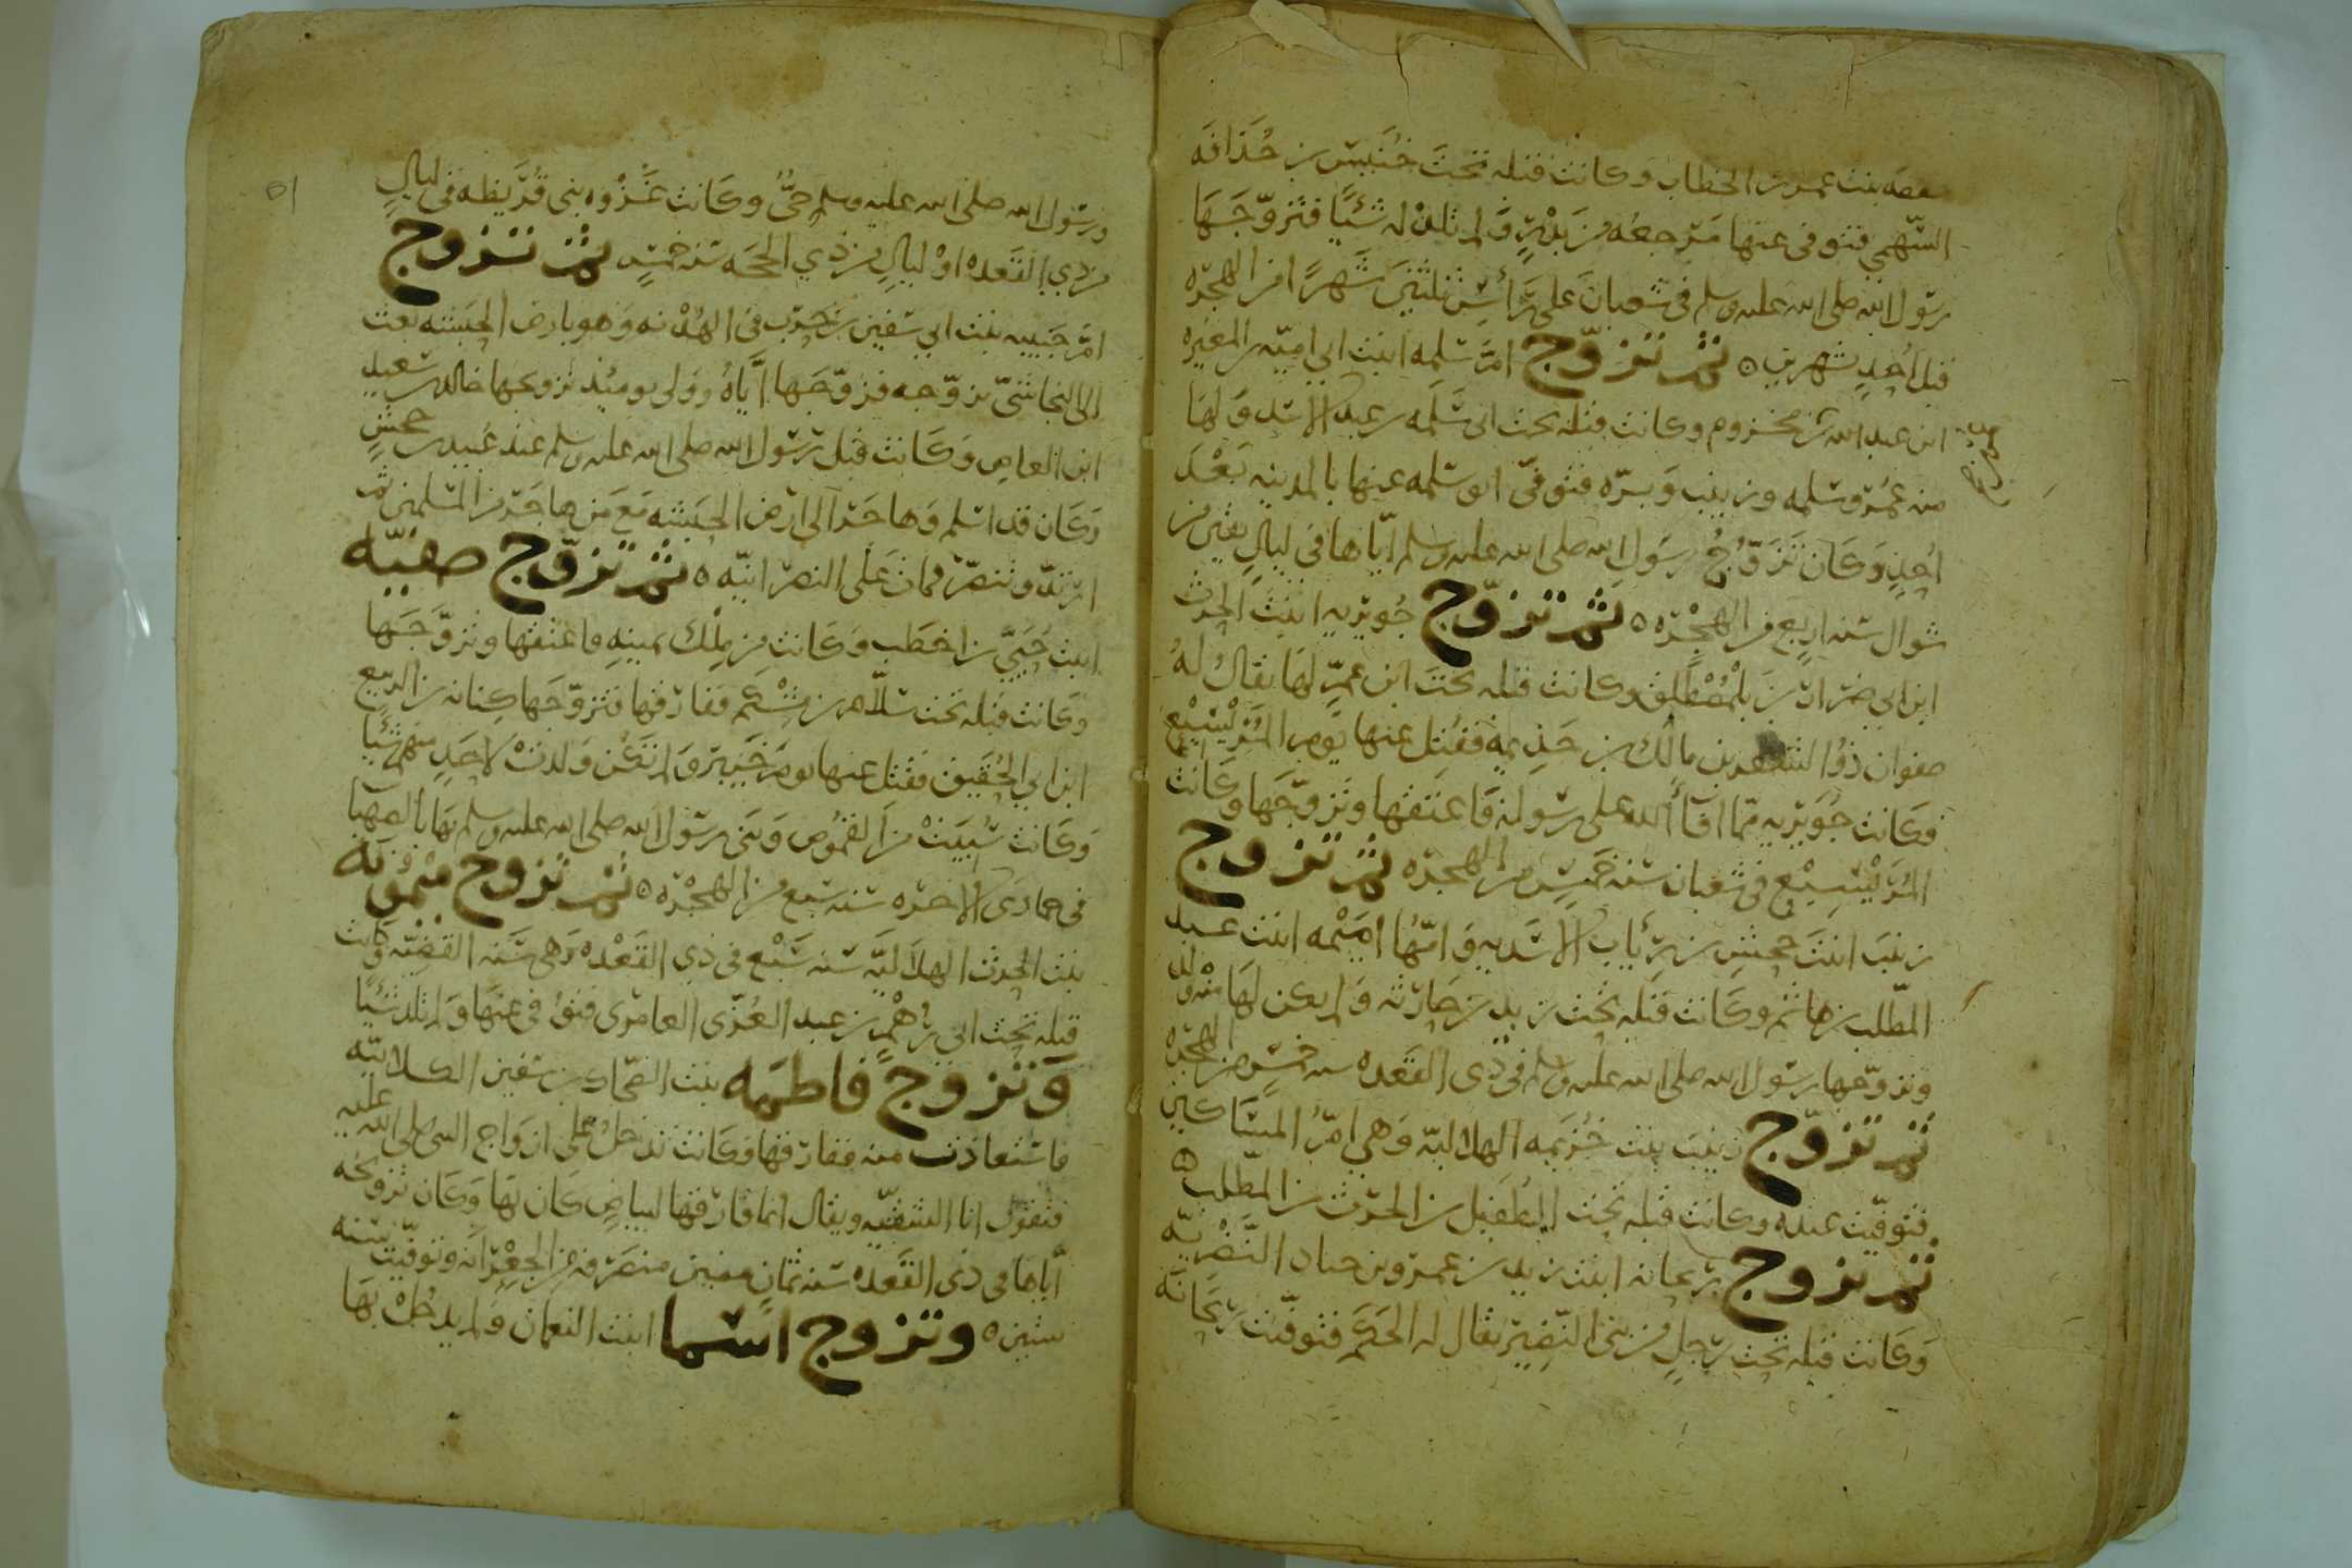 حفصه بنت عمر بن الخطاب وكانت قبله تحت خُنَيس بن حُذَافَه
السّهمي فتوفى عنها مَرجعُه من بَدْرٍ وَلم تلدْ له شَيًا فتزوّجَهَا
رسول الله صلى الله عليه وسلم فى شعبانَ على رَأسِ ثلثينَ شَهرًا من الهجرَه
قبل اُحدٍ بشهرين ٥ ثم تزوّج امَّ سَلمه ابنت ابى اميّه بن المغيره
ابن عبد الله بن مخزوم وكانت قبله تحت ابى سَلَمه بن عبد الاسَد وَلهَا
منه عُمرَ وسَلمه وزينب وَبرّه فتوفىّ ابو سَلمه عنها بالمدينه بَعْدَ
اُحدٍ وَكَان تَزَوُّجُ رسَول الله صلى الله عليه وسلم ايّاها فى ليالٍ بقين من
شوال سَنه اربع من الهجْرَه ٥ ثم تزوّج جُويريه ابنتَ الحرث
ابن ابي ضرار من بلمُصْطلق وكانت قبله تحتَ ابن عمّ لهَا يقال له
صفوان ذُو الشفر بن مالك بن جَذيمه فقُتل عنها يَوم المُرَيْسيْع
فكانت جُويْريه مّما افَآ الله على رسَوله فَاعتَقها وَتزوّجَها وكَانت
المُرَيْسِيْع فى شعبان سَنه خَمسٍ من الهجرَه ثم تزوج
زينبَ ابنتَ جَحشِ بن رِئَاب الاسَديه وَامّهَا امَيْمه ابنت عبد
المطّلب بن هاشم وكَانت قبله تحت زيد بن حَارثه وَلم يكن لهَا منه ولد
وتزوّجها رسَول الله صلى الله عليه وسلم فى ذى القعده سنه خمسٍ من الهجره
ثم تزوّج زينبَ بنت خُزيمه الهلاليّه وَهى امّ المسَاكين
فتوفّيت عنده وكانت قبله تحت الطُفَيل بن الحرَث بن المطّلب ٥
ثم تزوج ريحانه ابنت زيد بن عمرو بن خناد النَّضْريّه
وَكَانت قبله تحت رَجلٍ من بنى النّضِير يقال له الحَكَم فتوفّيت ريحَانَه
ورسَول الله صلى الله عليه وسلم حىٌّ وكَانت غَزْوه بنى قُرَيظه فى ليالٍ
من ذي القَعده اوْ ليالٍ من ذي الحجه سَنه خمسٍ ثم تزوج
امّ حَبيبه بنت ابي سفين بن حرب فى الهُدْنه وَهو بارض الحبشه بعث
الى النجاشىّ يزوّجه فزوّجَها ايّاهُ ووَلى يوميذ تزويجها خالد بن سَعيد
ابن العاص وَكَانت قبل رسَول الله صلى الله عليه وسلم عند عُبيد بن جحشٍ
وَكَان قد اسْلم وَهاجَر الى ارض الحبَشه مَعَ مَن هاجَر من المسَلمين ثم
ارتدّ وتنصّرَ فمات عَلَى النصرَانيّه ٥ ثم تزوّج صفيّه
ابنت حُيَىّ بن اخطَب وَكَانت من مِلْك يمينهِ فاعتقها وتزوّجَها
وكَانت قبله تحت سَلّام بن مِشْكم ففارَقها فتزوّجَها كِنانه بن الربيع
ابن ابي الحُقَيق فقتل عنها يومَ خَيبَر وَلم تَكُن وَلدتْ لاحَدٍ منهم شَيًا
وَكَانت سُبِيَتْ من القمُوص وَبَنى رسَول الله صلى الله عليه وسلم بهَا بالصهبا
فى جمادَى الاخرَه سَنه سَبع من الهجْرَه ٥ ثم تزوج ميْمُونَه
بنت الحرث الهلاَليَّه سَنه سَبْع فى ذي القَعْده وَهى سَنَه القَضيّه وكانت
قبله تحت ابى رُهْم بن عبد العُزّى العامرى فتوُفى عنهَا وَلم تلد شَيًا
وَتزوج فاطمَه بنت الضحّاك بن سفين الكلابيّه
فاستعاذت منه ففارَقها فكَانتَ تدخلُ على ازوَاج النبى صلى الله عليه
فتقول انا الشقيّه ويقال انما فارَقها لبياضٍ كَان بهَا وَكَان تزويجُه
ايّاهَا فى ذى القَعده سَنه ثمانٍ منصَرَفه من الجعْرَانه وَتوفّيت سَنه
ستين ٥ وتزوج اسَما ابنت النعمان وَلم يدخُلْ بهَا